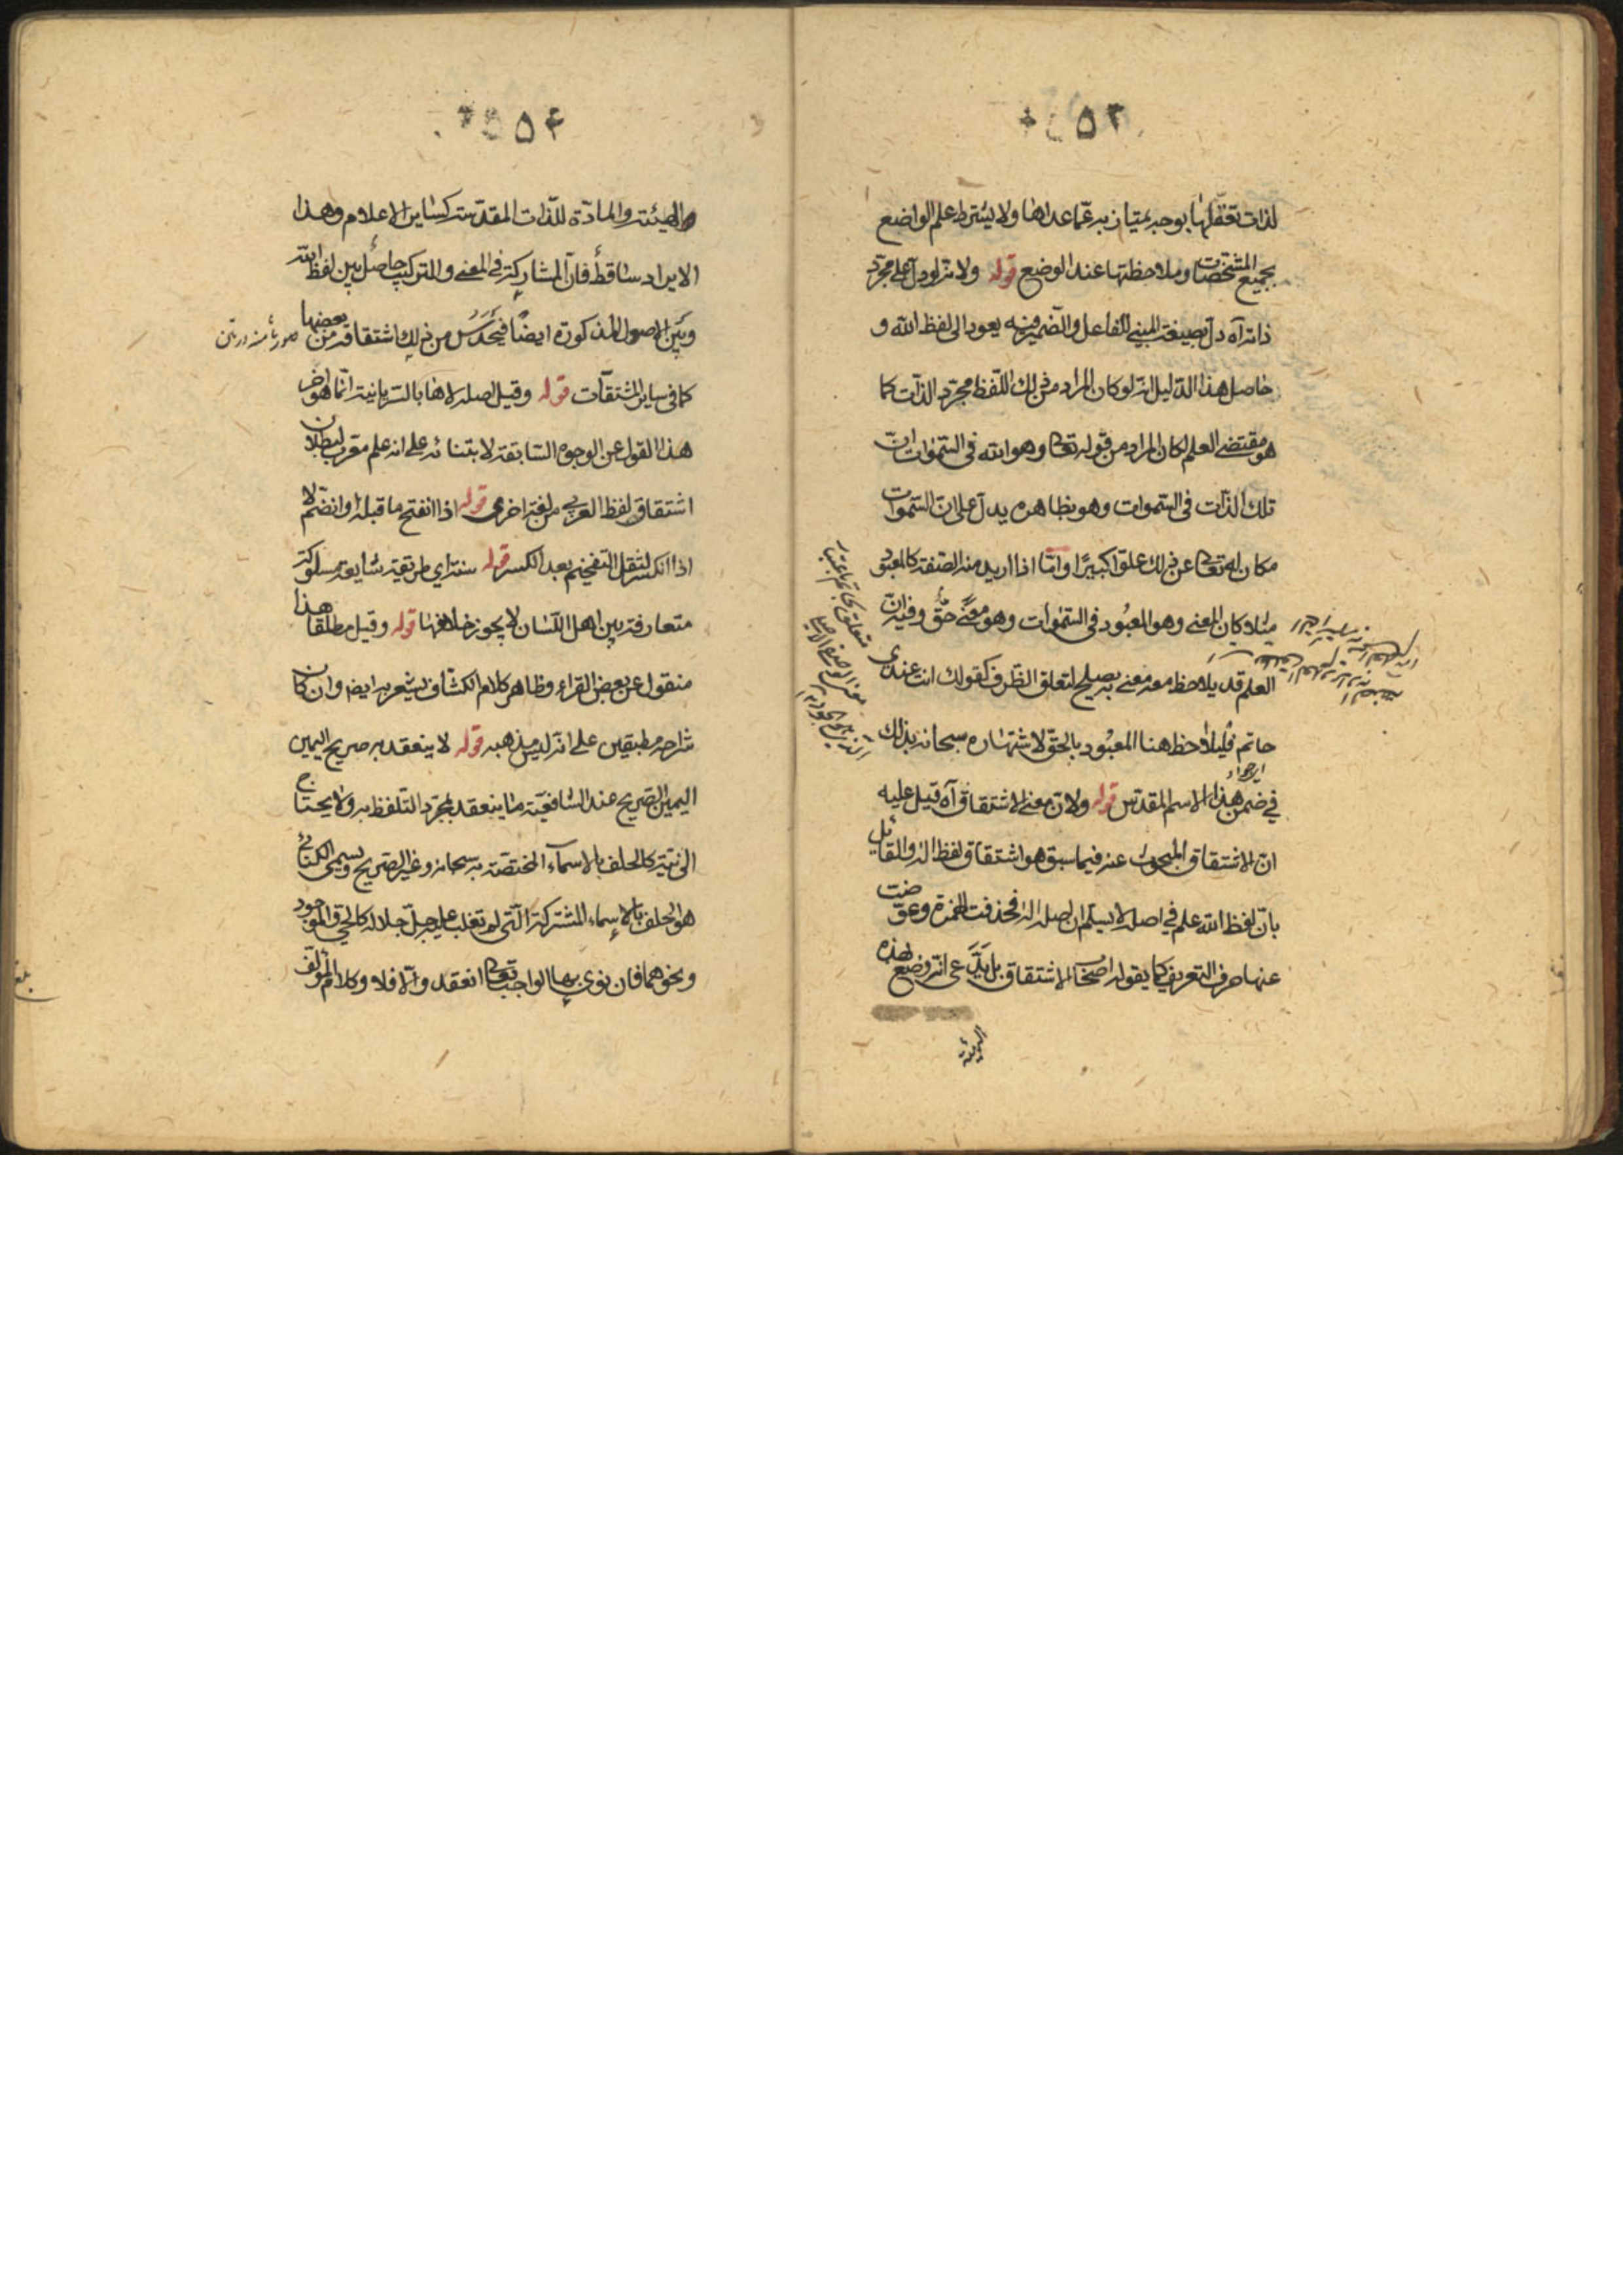 لذات تعقلها بوجه يمتاز به عمّا عداها ولا يشترط علم الواضع
بجميع المشخصات وملاحظتها عند الوضع قوله ولانه لو دل على مجرّد
ذاته آه دل بصيغة المبني للفاعل والضمير فيه يعود الى لفظ الله و
حاصل هذا الدليل انه لو كان المراد من ذلك اللفظ مجرّد الذات كما
هو مقتضى العلم لكان المراد من قوله تعالى وهو الله في السّموات انّ
تلك الذات في السّموات وهو بظاهره يدل على ان السّموات
مكان له تعالى عن ذلك علوّا كبيرًا وامّا اذا اريد منه الصّفة كالمعبود
مثلا كان المعنى وهو المعبُود في السّموات وهو معنًى حقّ وفيه انّ
العلم قد يلاحظ معه معنى به يصلح لتعلق الظرف كقولك انت عندى
حاتم فليلاحظ هنا المعبُود بالحقّ لاشتهاره سبحانه بذلك
في ضمن هذا الاسم المقدس قوله ولان معنى الاشتقاق آه قيل عليه
انّ الاشتقاق المبحوث عنه فيما سبق هو اشتقاق لفظ اله وللقائل
بانّ لفظ الله علم في اصله لا يسلم ان اصله اله فحذفت الهمزة وعوّضت
عنها حرف التعريف كما يقوله اصحاب الاشتقاق بل يدّعى انه وضع لهذه
الهيئة
۴۵۴
والهيئة والمادّة للذات المقدسة كساير الاعلام وهذا
الايراد ساقط فانّ المشاركة في المعنى والتركيب حاصل بين لفظ الله
وبَين الاصول المذكورة ايضًا فيحدس من ذلك اشتقاقه من بعضها
كما في ساير المشتقات قوله وقيل اصله لاها بالسّريانية انّما اخر
هذا القول عن الوجوه السّابقة لابتنائه على انه علم معرّب لبطلان
اشتقاق لفظ العربي من لغة اخرى قوله اذا انفتح ما قبله او انضمّ لا
اذا انكسر لثقل التفخيم بعد الكسر قوله سنة اي طريقة شايعة مسلوكة
متعارفة بين اهل اللسان لا يجوز خلافها قوله وقيل مطلقا هذا
منقول عن بعض القراء وظاهر كلام الكشاف يشعر به ايضا وان كان
شارحه مطبقين على انه ليس مذهبه قوله لا ينعقد به صريح اليمين
اليمين الصّريح عند الشافعيّة ما ينعقد بمجرّد التلفظ به ولا يحتاج
الى نيّة كالحلف بالاسمآء المختصّة به سبحانه وغير الصّريح ويسمى الكنائي
هو الحلف بالاسماء المشتركة الّتي لم تغلب عليه جلّ جلاله كالحيّ والموجود
ونحوهما فان نوى بهما الواجب تعالى انعقد والّا فلا وكلام المؤلّف